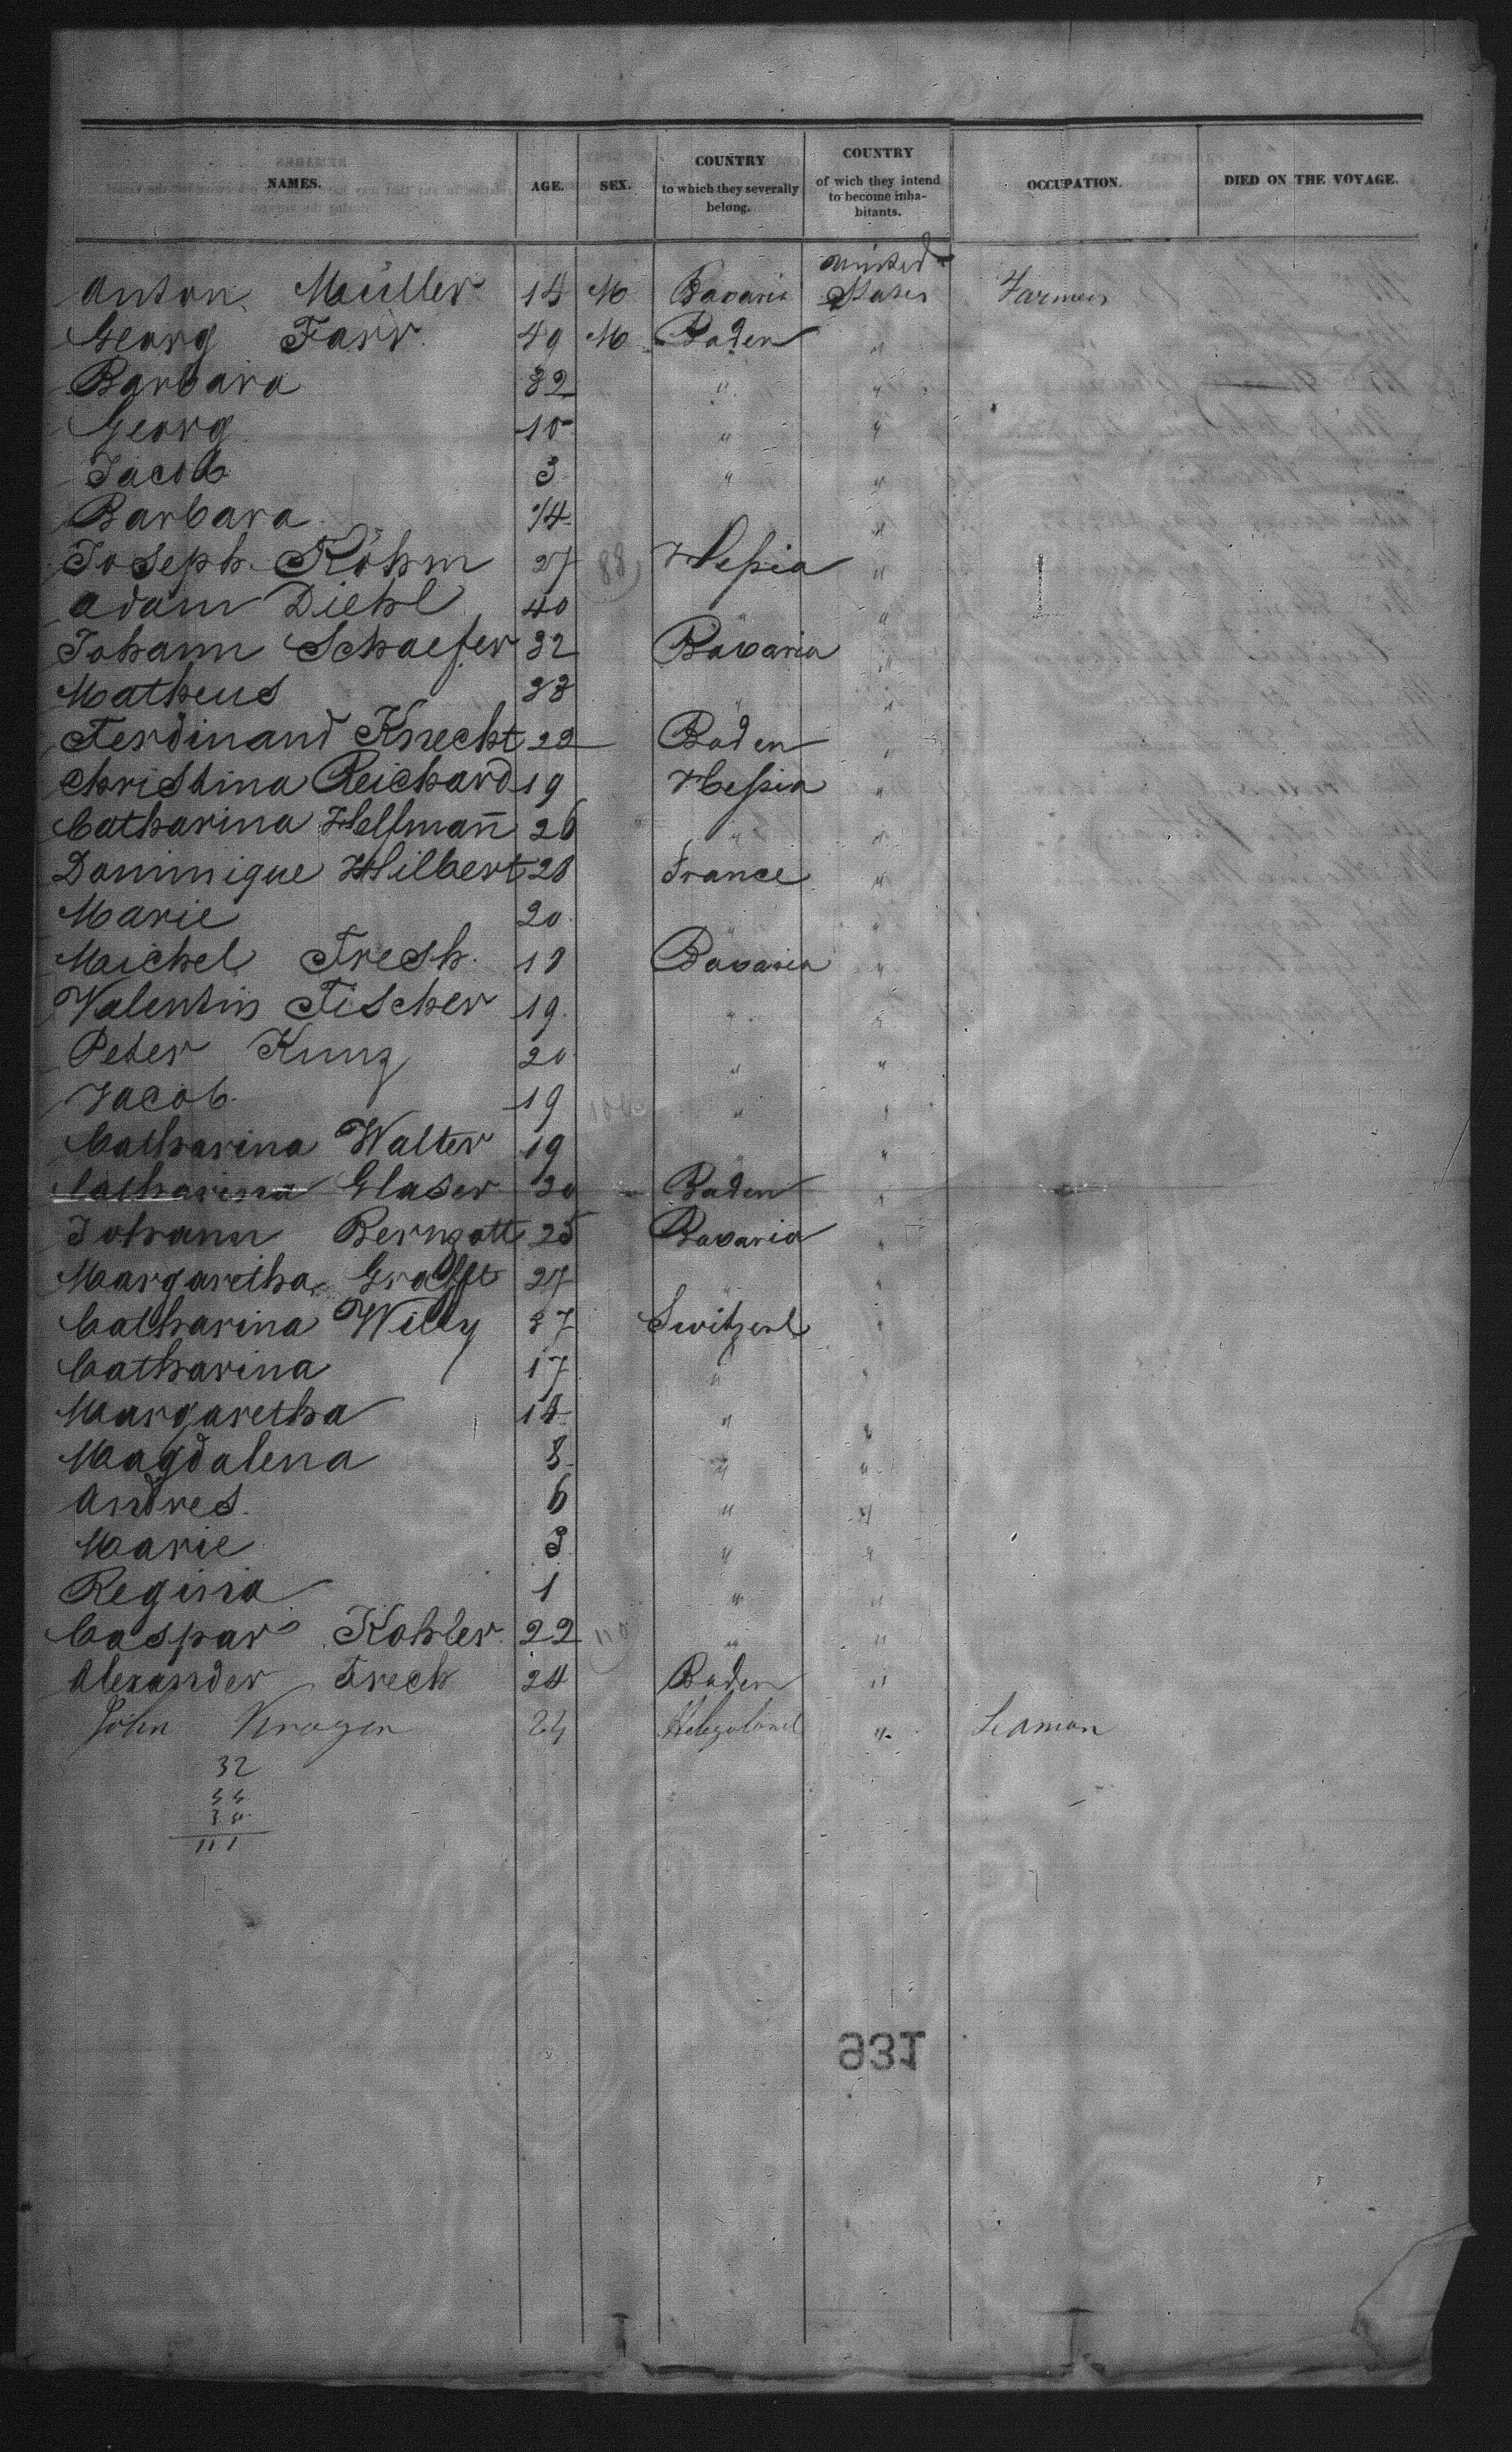 NAMES. AGE. SEX. COUNTRY to which they severally belong. COUNTRY of wich they intend to become inhabitants. OCCUPATION. DIED ON THE VOYAGE.
Anton Müller 14 M Bavaria United States Farmer
Georg Farr 49 M Baden "
Barbara 32 " "
Georg 10 " "
Jacob 3 " "
Barbara 1/4 "
Joseph Röhm 27 88 Hessia "
Adam Diehl 40 " "
Johann Schaefer 32 Bavaria "
Matheus 33 " "
Ferdinand Knecht 22 Baden "
Christina Reichard 19 Hessia "
Catharina Helfman̄ 26 " "
Dominique Hilbert 28 France "
Marie 20 " "
Michel Fresh 18 Bavaria "
Valentin Fischer 19 " "
Peter Kunz 20 " "
Jacob 19 " "
Catharina Walter 19 " "
Catharina Glaser 20 Baden "
Johann Bernzott 25 Bavaria "
Margaretha 27 " "
Catharina Willy 37 Switzerl "
Catharina 17 " "
Margaretha 14 " "
Magdalena 8 " "
Andres 6 " "
Marie 3 " "
Regina 1 " "
Caspar Kohler 22 110 " "
Alexander Frech 24 Baden "
John Kroger 24 Helgoland " Seaman
32
44
35
111
931